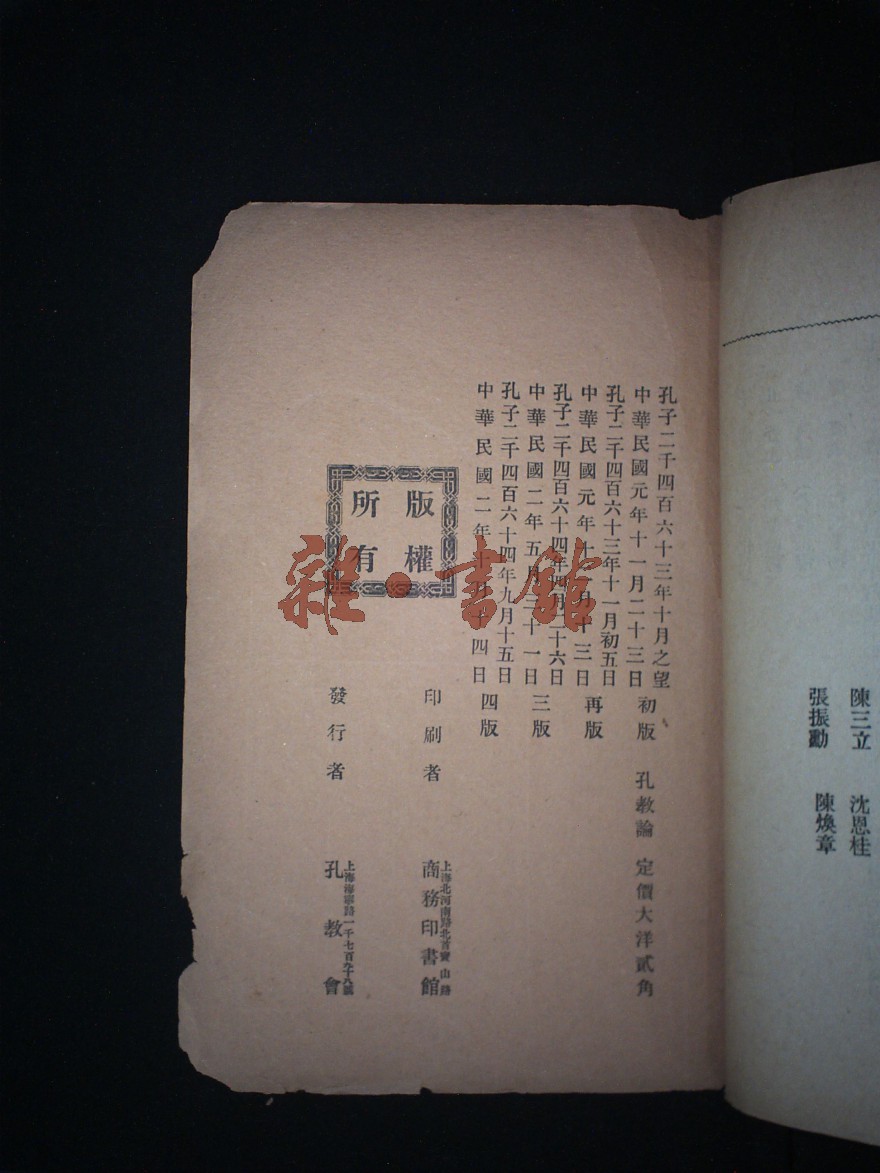 陳三立 沈恩桂
張振勳 陳煥章
孔子二千四百六十三年十月之望
中華民國元年十一月二十三日 初版 孔教論 定價大洋貳角
孔子二千四百六十三年十一月初五日
中華民國元年十二月十三日 再版
孔子二千四百六十四年四月二十六日
中華民國二年五月三十一日 三版
孔子二千四百六十四年九月十五日
中華民國二年十月十四日 四版
版權
所有
上海北河南路北首寶山路
印刷者 商務印書館
上海海寧路一千七百九十八號
發行者 孔教會
雜·書館